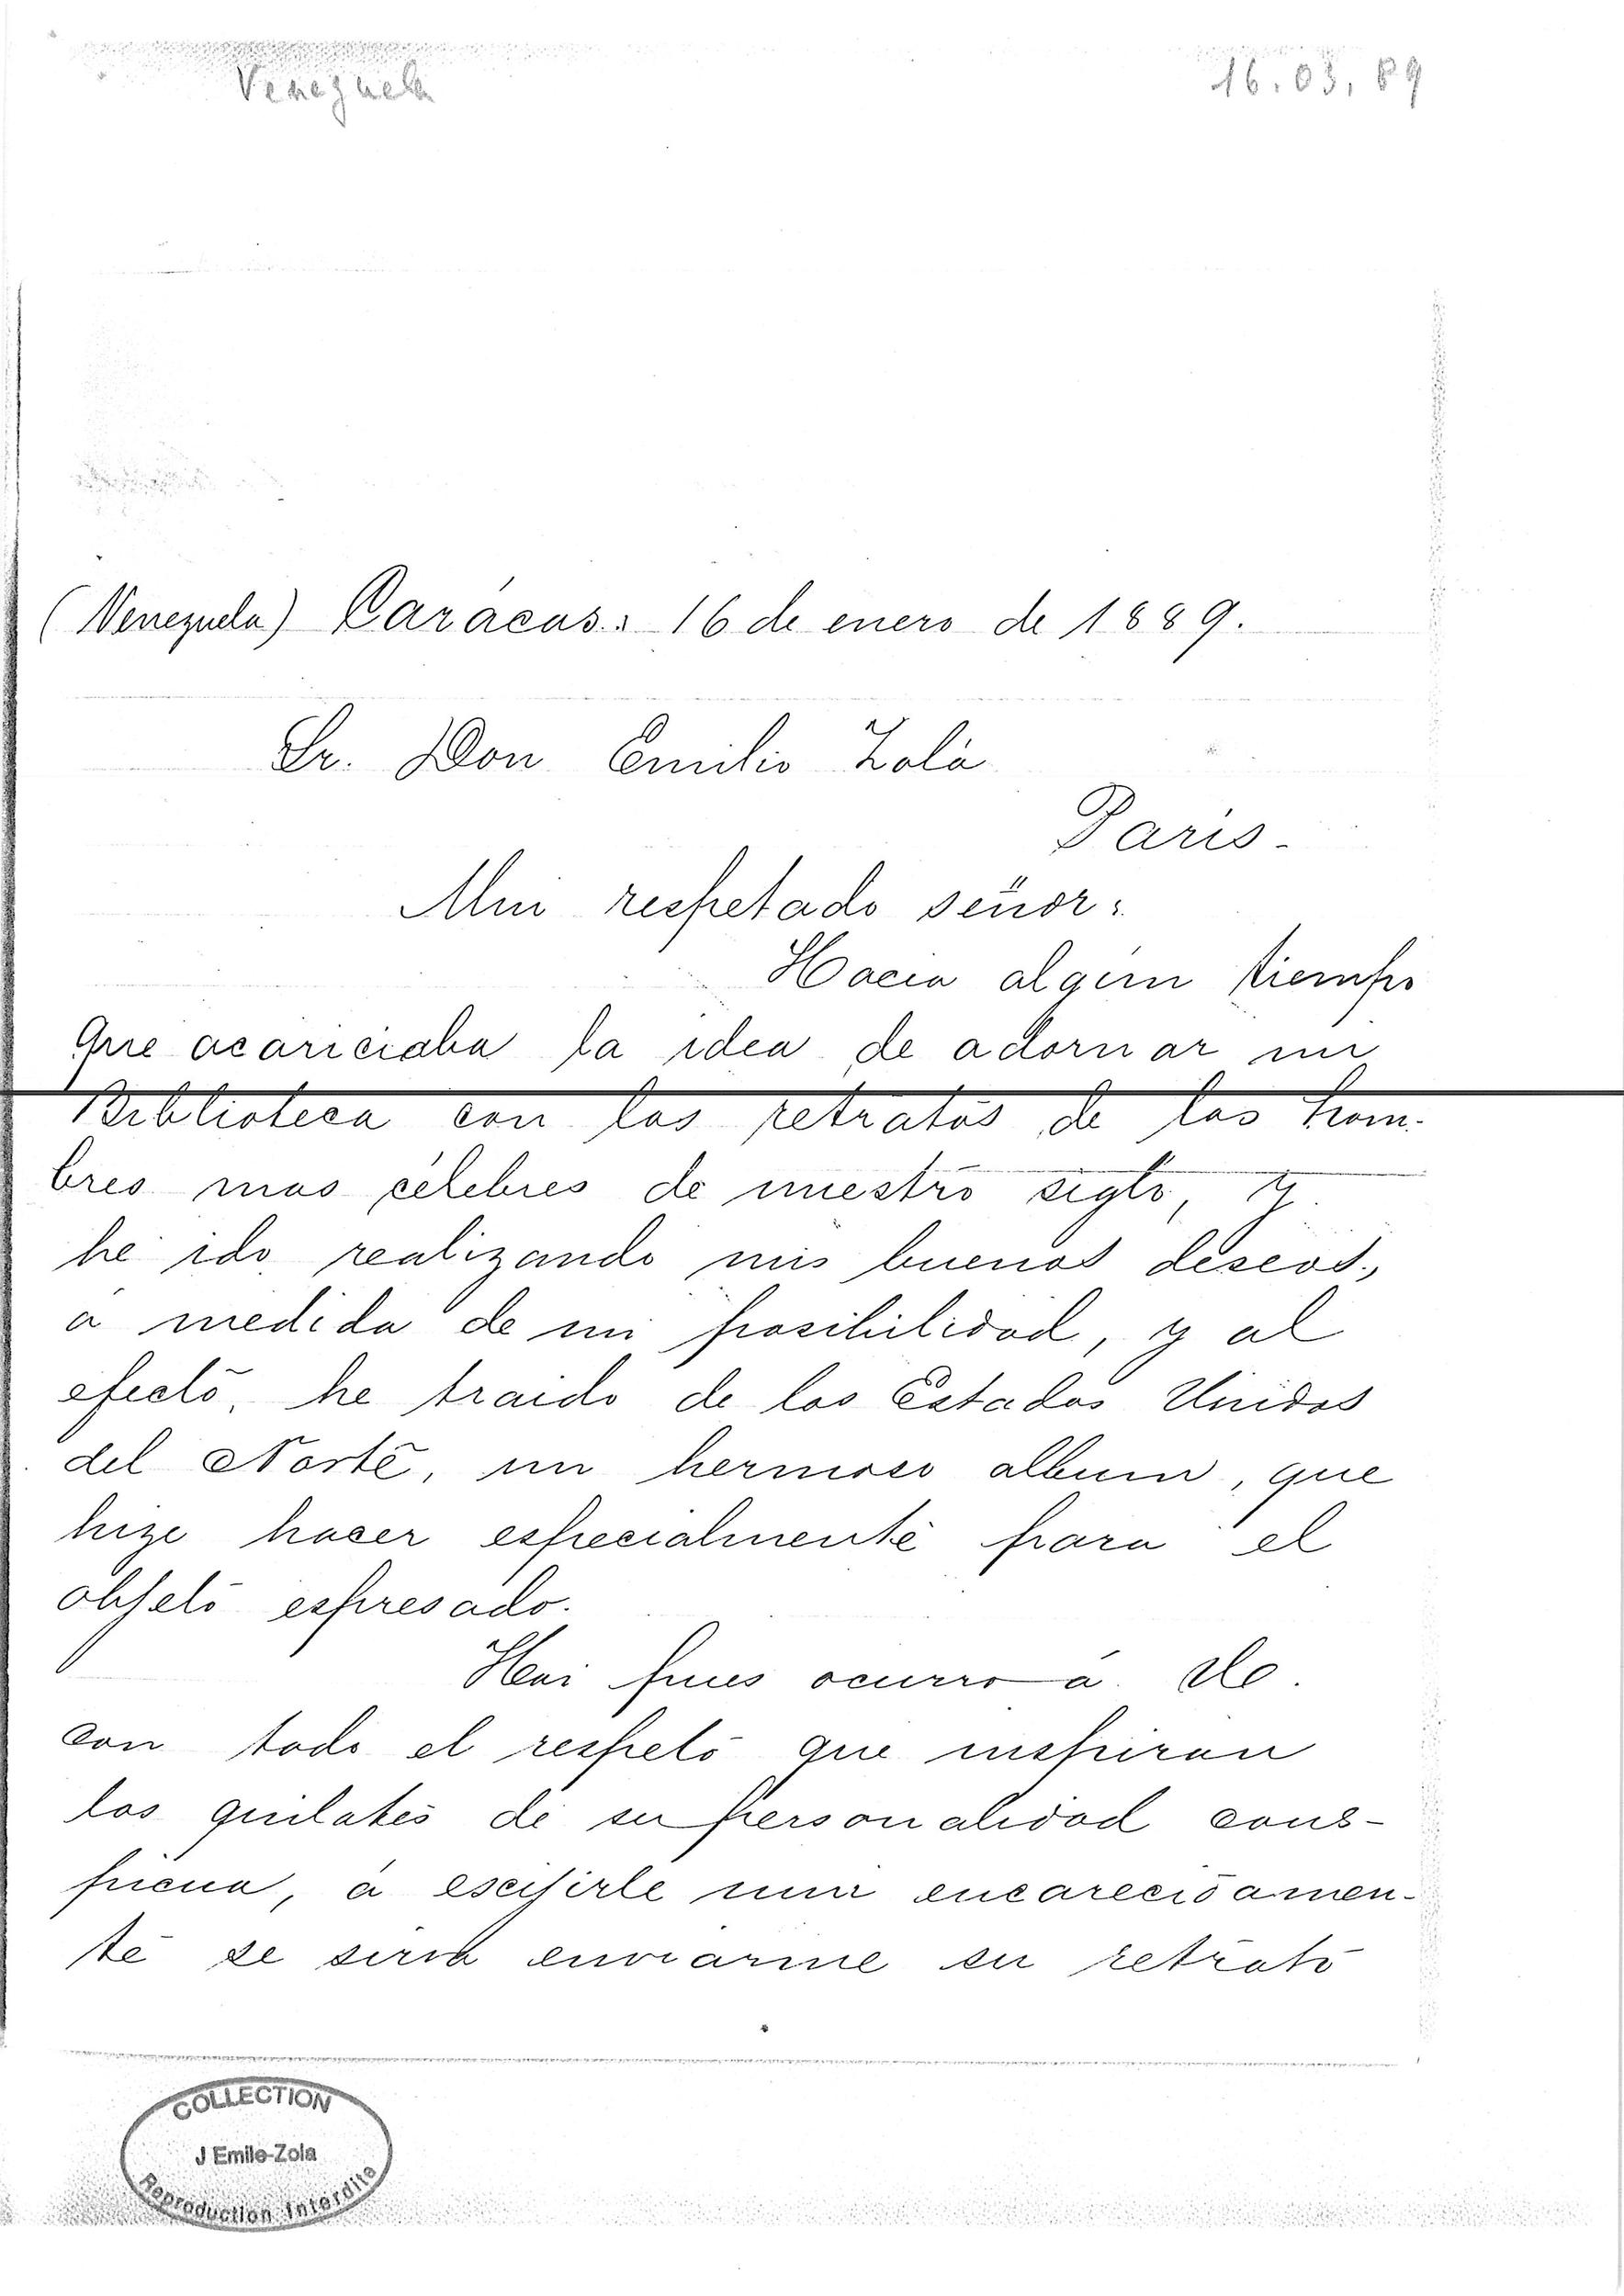 Venezuela 16.03.89
(Venezuela) Carácas: 16 de enero de 1889.
Sr. Don Emilio Zola
Paris.
Mui respetado señor:
Hacia algun tiempo
que acariciaba la idea de adornar mi
Biblioteca con los retratos de los hom-
bres mas célebres de nuestro siglo, y
he ido realizando mis buenos deseos,
a medida de mi posibilidad, y al
efecto, he traido de los Estados Unidos
del Norte, un hermoso album, que
hize hacer especialmente para el
objeto espresado.
Hoi pues ocurro á
con todo el respeto que inspiran
los quilates de su personalidad cons-
picua, á escijirle mui encarecidamen-
te se sirva enviarme su retrato
COLLECTION
J Emile-Zola
Reproduction Interdite